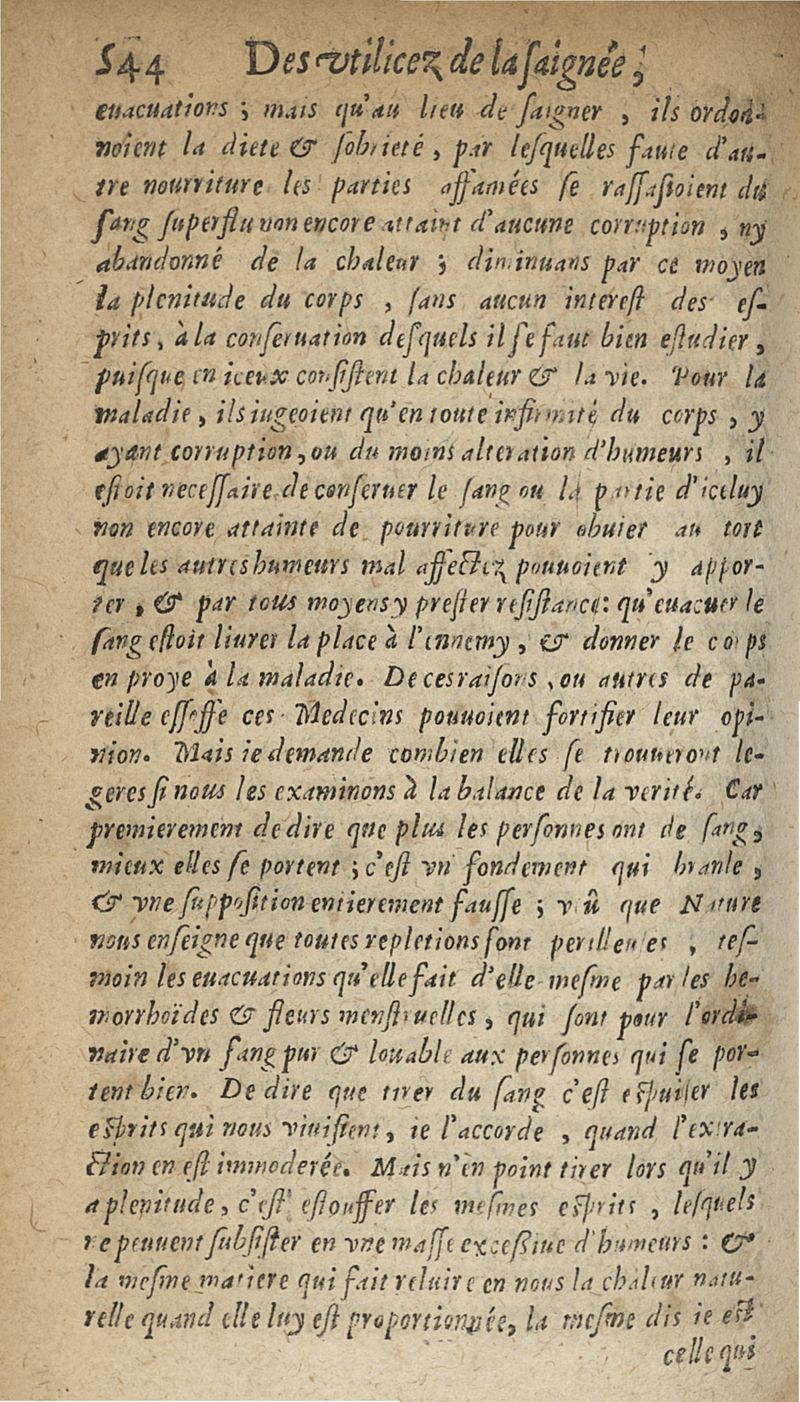 544 Des vtilitez de la ſaignée,
euacuations ; mais qu'au lieu de ſaigner , ils ordon-
noient la diete & ſobrieté , par leſquelles faute d'au-
tre nourriture les parties affamées ſe raſſaſioient du
ſang ſuperflu non encore attaint d'aucune corruption , ny
abandonné de la chaleur ; diminuans par ce moyen
la plenitude du corps , ſans aucun intereſt des eſ-
prits, à la conſeruation deſquels il ſe faut bien eſtudier ,
puiſque en iceux conſiſtent la chaleur & la vie. Pour la
maladie , ils iugeoient qu'en toute infirmité du corps , y
ayant corruption , ou du moins alteration d'humeurs , il
eſtoit neceſſaire de conſeruer le ſang ou la partie d'iceluy
non encore attainte de pourriture pour obuier au tort
que les autres humeurs mal affectez pouuoient y appor-
ter , & par tous moyens y preſter reſiſtance : qu'euacuer le
ſang eſtoit liurer la place à l'ennemy , & donner le corps
en proye à la maladie. De ces raiſons , ou autres de pa-
reille eſtoffe ces Medecins pouuoient fortifier leur opi-
nion. Mais ie demande combien elles ſe trouueront le-
geres ſi nous les examinons à la balance de la verité. Car
premierement de dire que plus les perſonnes ont de ſang,
mieux elles ſe portent ; c'eſt vn fondement qui branle ,
& vne ſuppoſition entierement fauſſe ; vû que Nature
nous enſeigne que toutes repletions ſont perilleuſes , teſ-
moin les euacuations qu'elle fait d'elle meſme par les he-
morrhoïdes & fleurs menſtruelles , qui ſont pour l'ordi-
naire d'vn ſang pur & louable aux perſonnes qui ſe por-
tent bien. De dire que tirer du ſang c'eſt eſpuiſer les
eſprits qui nous viuifient, ie l'accorde , quand l'extra-
ction en eſt immoderée. Mais n'en point tirer lors qu'il y
a plenitude , c'eſt eſtouffer les meſmes eſprits , leſquels
ne peuuent ſubſiſter en vne maſſe exceſſiue d'humeurs : &
la meſme matiere qui fait reluire en nous la chaleur natu-
relle quand elle luy eſt proportionnée, la meſme dis ie eſt
celle qui